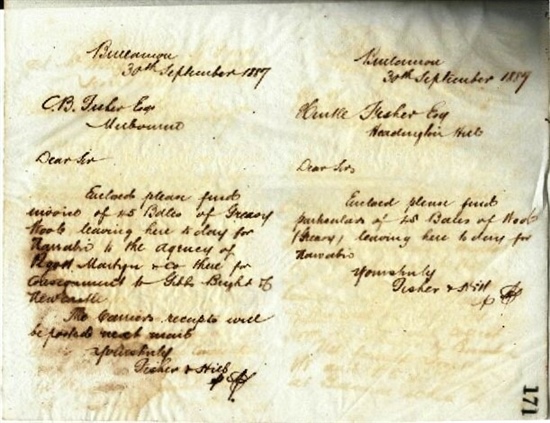 Bullamon
30th September 1887
C.B. Fisher Esq
Melbourne
Dear Sir
Enclosed please find
invoice of 45 Bales of Greasy
Wool leaving here to day for
Narrabri to the agency of
Martyn & Co there for
Consignment to Gibbs Bright &
Newcastle.
The Carriers receipts will
be posted next mail
Yours truly
Fisher & Hill
Bullamon
30th September 1887
Hurtle Fisher Esq
Headington Hill
Dear Sir
Enclosed please find
particulars of 45 Bales of Wool
(Greasy) leaving here to day for
Narrabri
Yours truly
Fisher & Hill
171